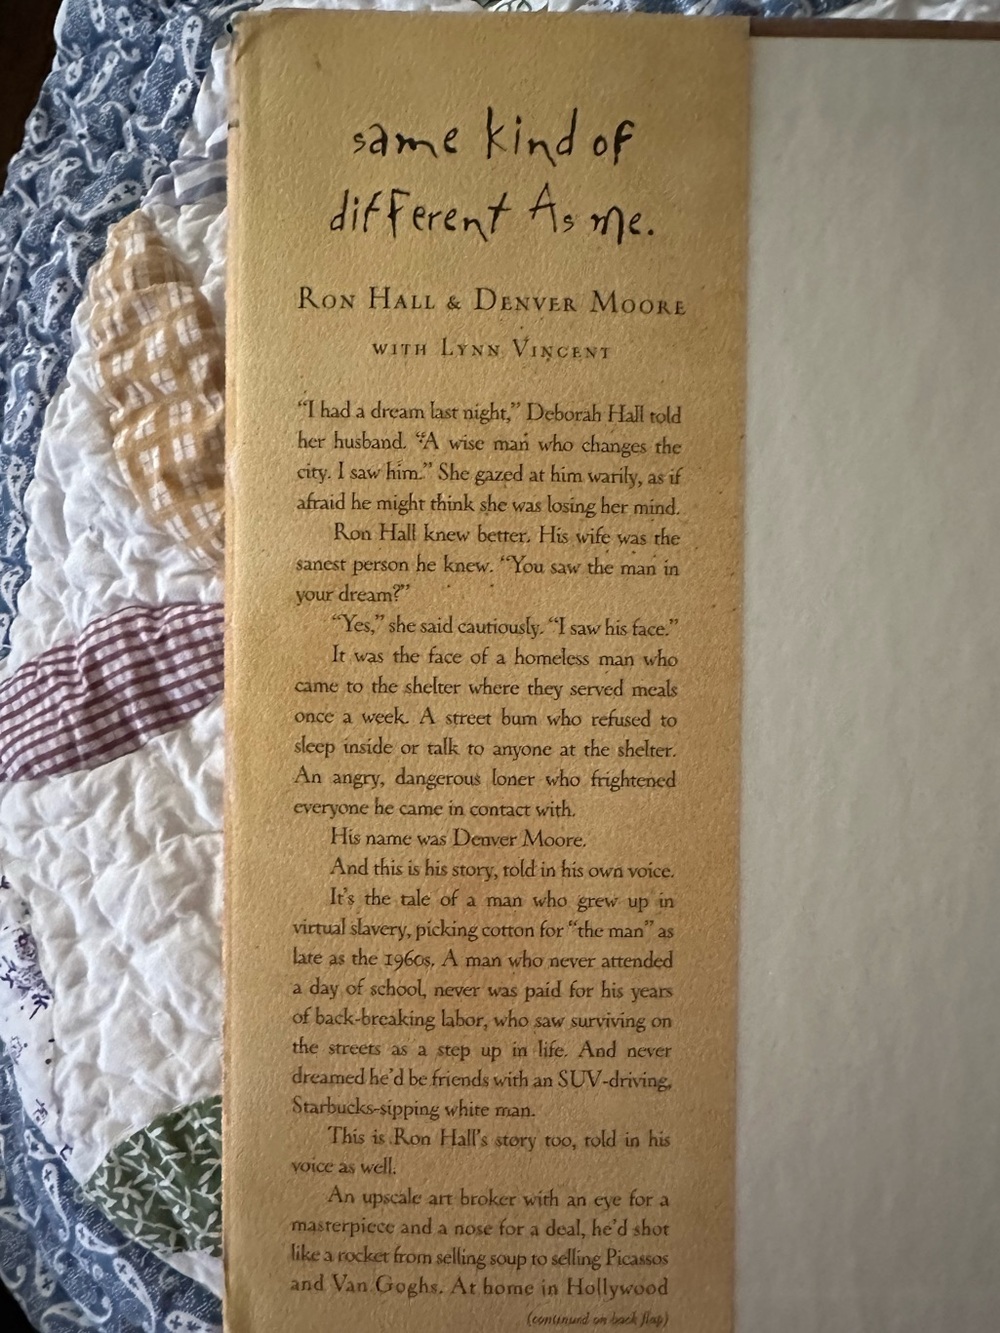 same kind of
different As me.
RON HALL & DENVER MOORE
WITH LYNN VINCENT
“I had a dream last night,” Deborah Hall told
her husband. “A wise man who changes the
city. I saw him.” She gazed at him warily, as if
afraid he might think she was losing her mind.
Ron Hall knew better. His wife was the
sanest person he knew. “You saw the man in
your dream?”
“Yes,” she said cautiously. “I saw his face.”
It was the face of a homeless man who
came to the shelter where they served meals
once a week. A street bum who refused to
sleep inside or talk to anyone at the shelter.
An angry, dangerous loner who frightened
everyone he came in contact with.
His name was Denver Moore.
And this is his story, told in his own voice.
It’s the tale of a man who grew up in
virtual slavery, picking cotton for “the man” as
late as the 1960s. A man who never attended
a day of school, never was paid for his years
of back-breaking labor, who saw surviving on
the streets as a step up in life. And never
dreamed he’d be friends with an SUV-driving,
Starbucks-sipping white man.
This is Ron Hall’s story too, told in his
voice as well.
An upscale art broker with an eye for a
masterpiece and a nose for a deal, he’d shot
like a rocket from selling soup to selling Picassos
and Van Goghs. At home in Hollywood
(continued on back flap)